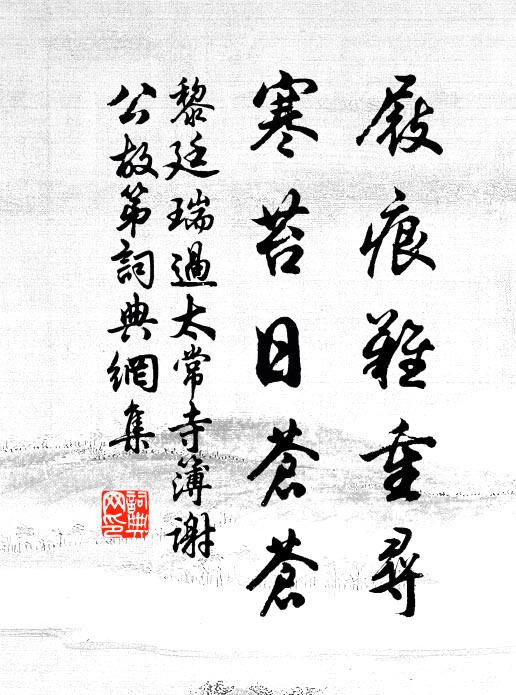 屐痕難重尋
寒苔日蒼蒼
黎廷瑞過太常寺簿謝
公故第詞典網集
詞典
网印